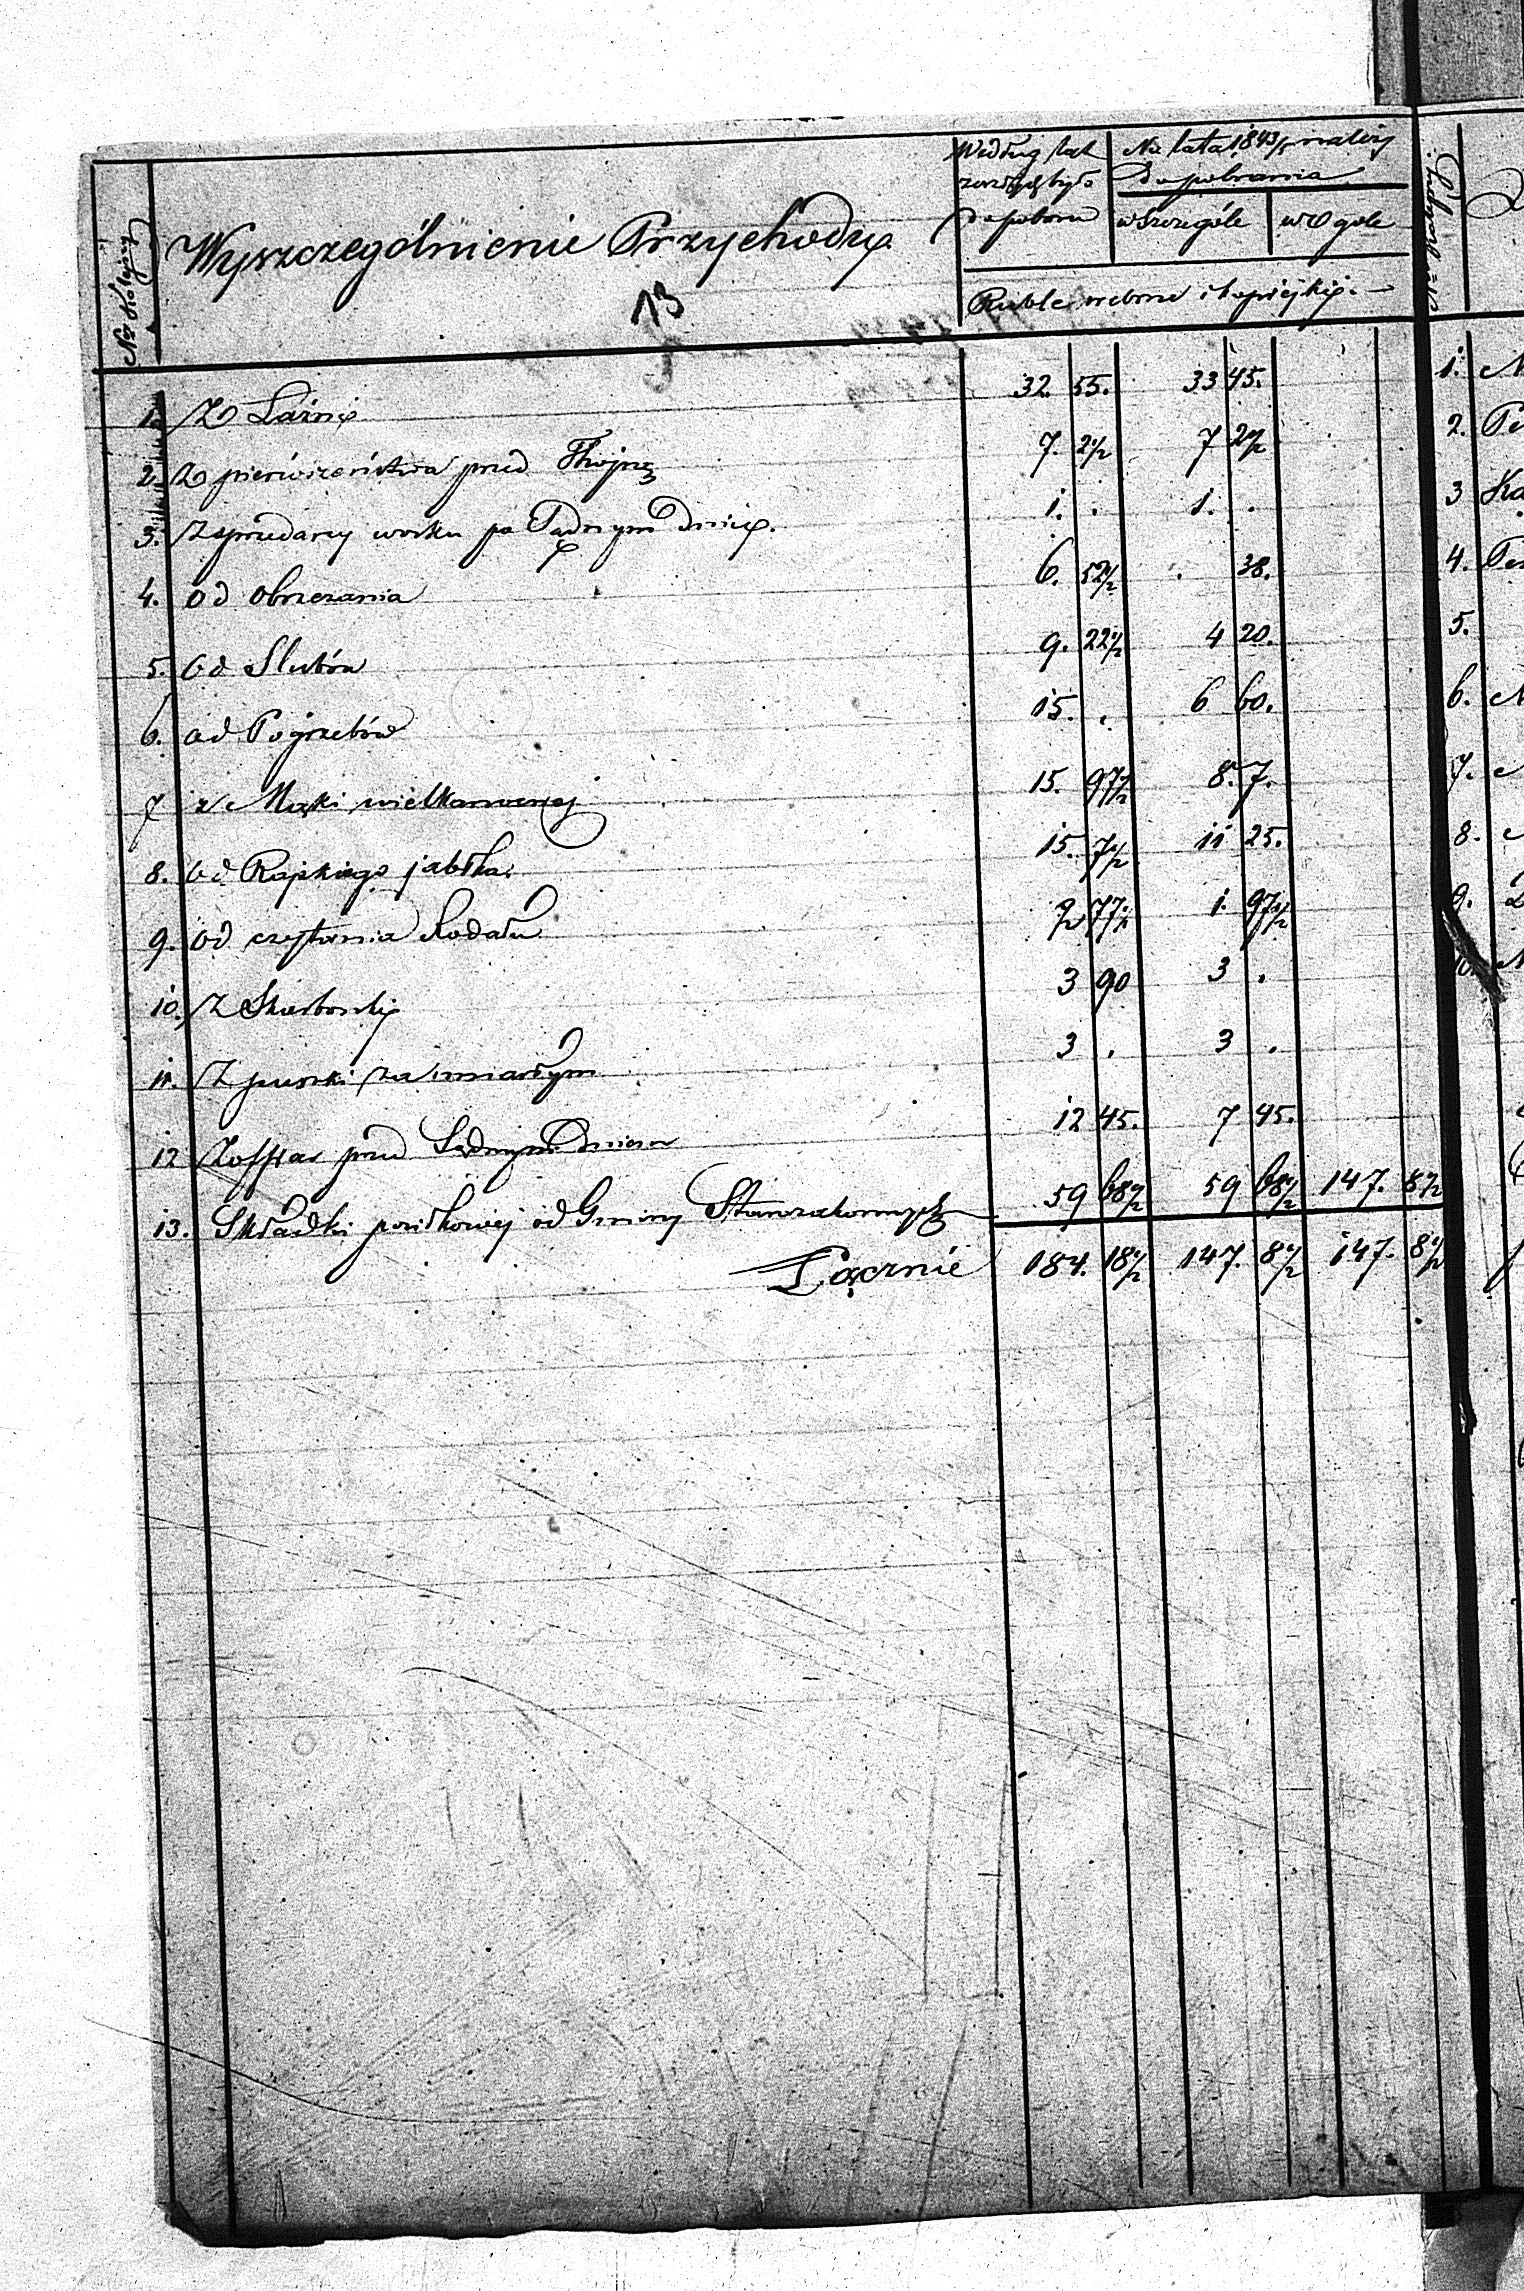 Wyszczególnienie Przychodu
13
Według lat
zeszłych było
do poboru
Na lata 1843/5 należy
do pobrania
w Szczególe
w Ogole
Ruble srebrne i kopiejki. —
1. Z Łaźni 32. 55. 33 45.
2. Z pierwszeństwa przed Thoyrą 7. 2 1/2 7 2 1/2
3. Z sprzedaży wosku po Sądnym Dniu. 1. . 1. .
4. od obrzezania 6. 52 1/2 . 38.
5. Od Slubów 9. 22 1/2 4 20.
6. od Pogrzebów 15. . 6 60.
7 z Mąki wielkanocnej 15. 97 1/2 8. 7.
8. Od Rajskiego jabłka. 15. 7 1/2 11 25.
9. od czytania Rodału 2 77 1/2 1. 97 1/2
10. Z Skarbonki 3 90 3 .
11. Z puszki za umarłym 3 . 3 .
12 Z offiar przed Sądnym Dniem 12 45. 7 45.
13. Składki posiłkowej od Gminy Starozakonnych 59 68 1/2 59 68 1/2 147. 8 1/2
Łącznie 184. 18 1/2 147. 8 1/2 147. 8 1/2
1.
2.
3
4.
5.
6.
7.
8.
9.
10.